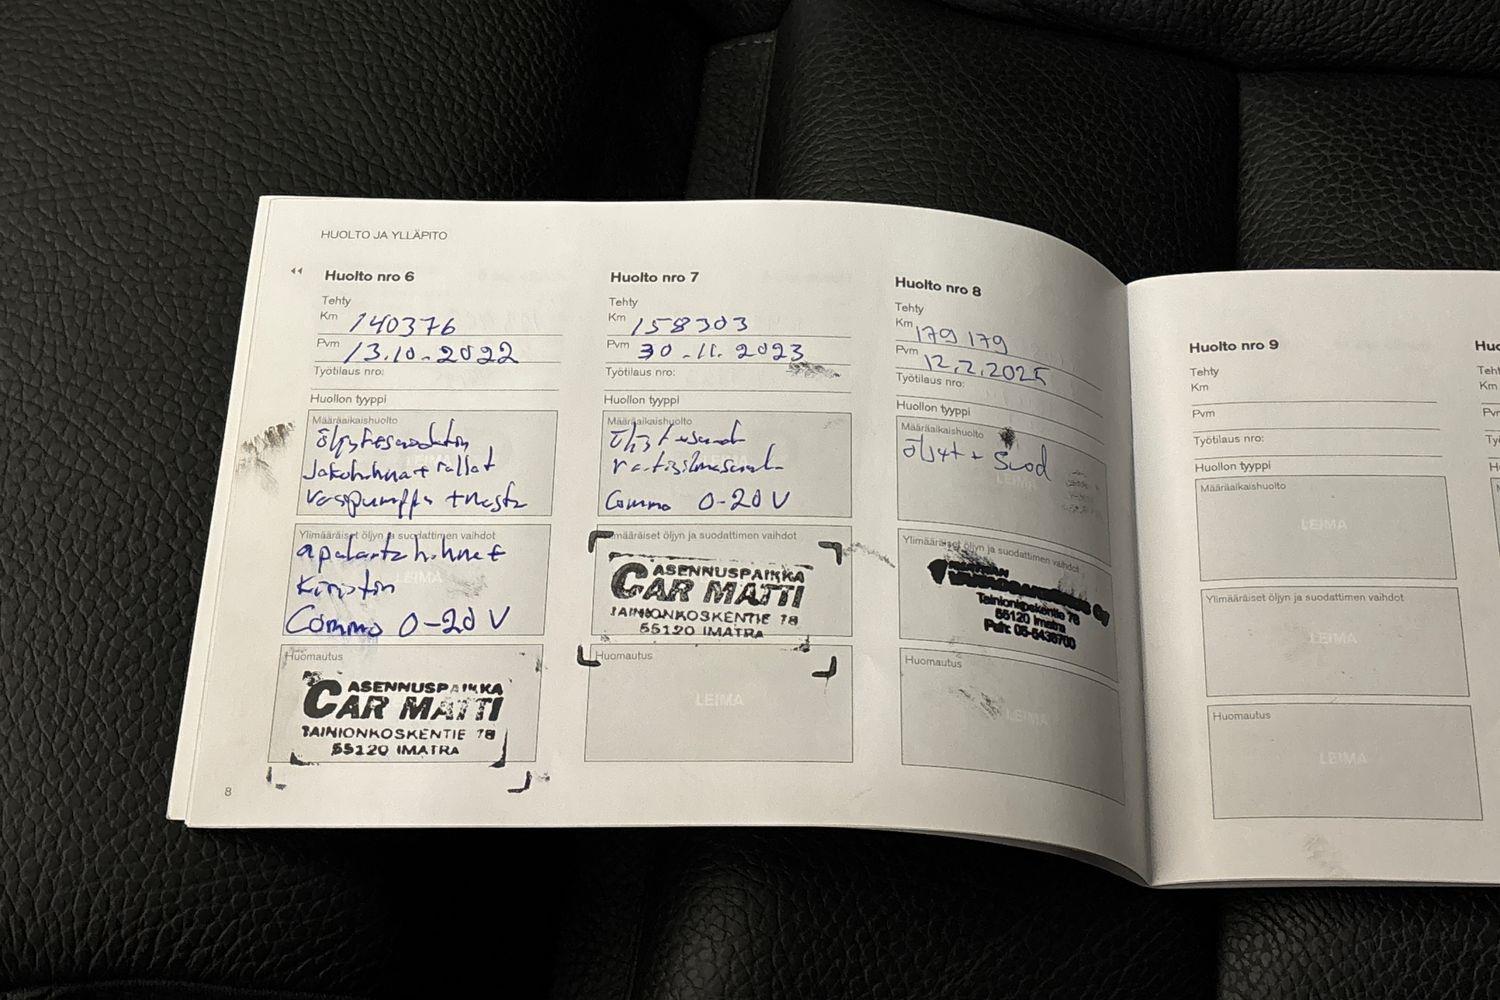 HUOLTO JA YLLÄPITO
Huolto nro 6
Tehty
Km 140376
Pvm 13.10-2022
Työtilaus nro:
Huollon tyyppi
Määräaikaishuolto
Jakohihna + rullat
Ylimääräiset öljyn ja suodattimen vaihdot
Commo 0-20 V
LEIMA
Huomautus
ASENNUSPAIKKA
CAR MATTI
TAINIONKOSKENTIE 78
55120 IMATRA
8
Huolto nro 7
Tehty
Km 158303
Pvm 30-11. 2023
Työtilaus nro:
Huollon tyyppi
Määräaikaishuolto
Commo 0-20 V
öljyn ja suodattimen vaihdot
ASENNUSPAIKKA
CAR MATTI
TAINIONKOSKENTIE 78
55120 IMATRA
Huomautus
LEIMA
Huolto nro 8
Tehty
Km 179 179
Pvm 12.2.2025
Työtilaus nro:
Huollon tyyppi
Määräaikaishuolto
öljyt + Suod
LEIMA
Ylimääräiset öljyn ja suodattimen vaihdot
Oy
Tainionkoskentie 78
55120 Imatra
Puh: 05-5436700
Huomautus
LEIMA
Huolto nro 9
Tehty
Km
Pvm
Työtilaus nro:
Huollon tyyppi
Määräaikaishuolto
LEIMA
Ylimääräiset öljyn ja suodattimen vaihdot
LEIMA
Huomautus
LEIMA
Km